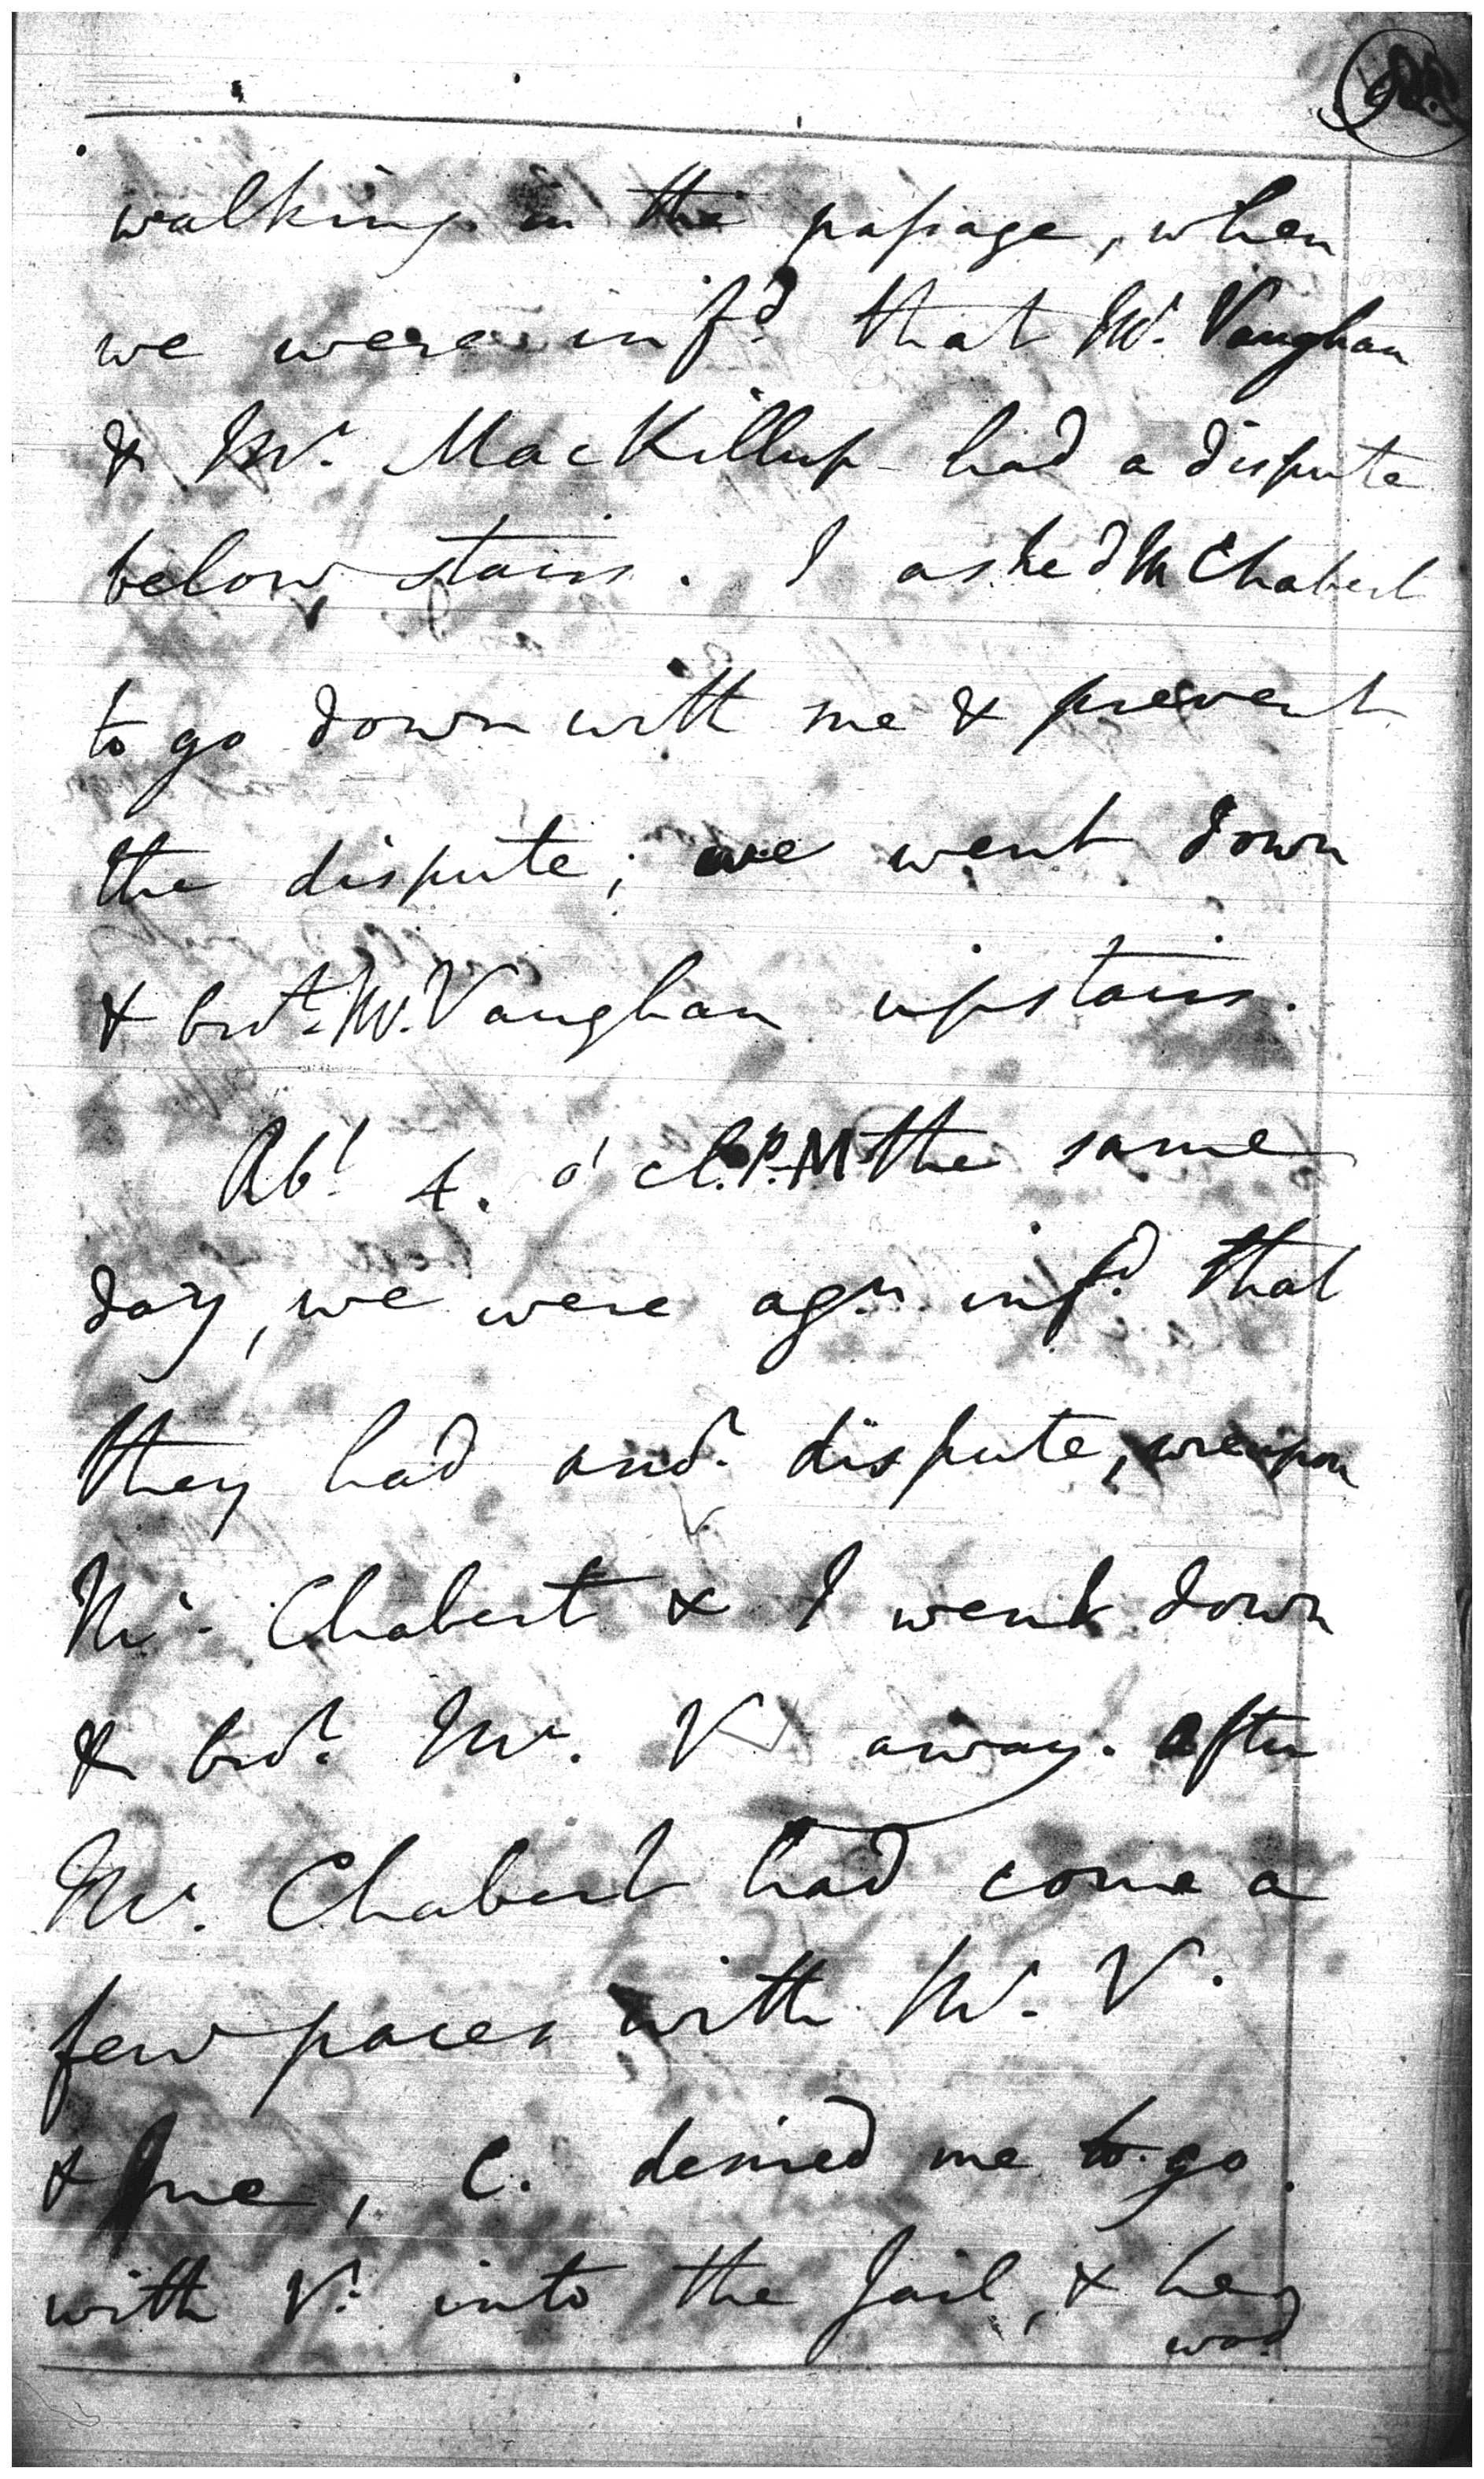 walking in the passage, when
we were inf.d that Mr. Vaughan
& Mr. MacKillup had a dispute
below stairs. I asked Mr Chabert
to go down with me & prevent
the dispute; we went down
& bro.t Mr. Vaughan upstairs.
Ab.t 4. o'cl. P.M the same
day, we were ag.n inf.d that
they had ano.r dispute, wreupon
Mr. Chabert & I went down
& bro.t Mr. V away. after
Mr. Chabert had come a
few paces with Mr. V.
& me, C. desired me to go
with V. into the Jail, & he
wod